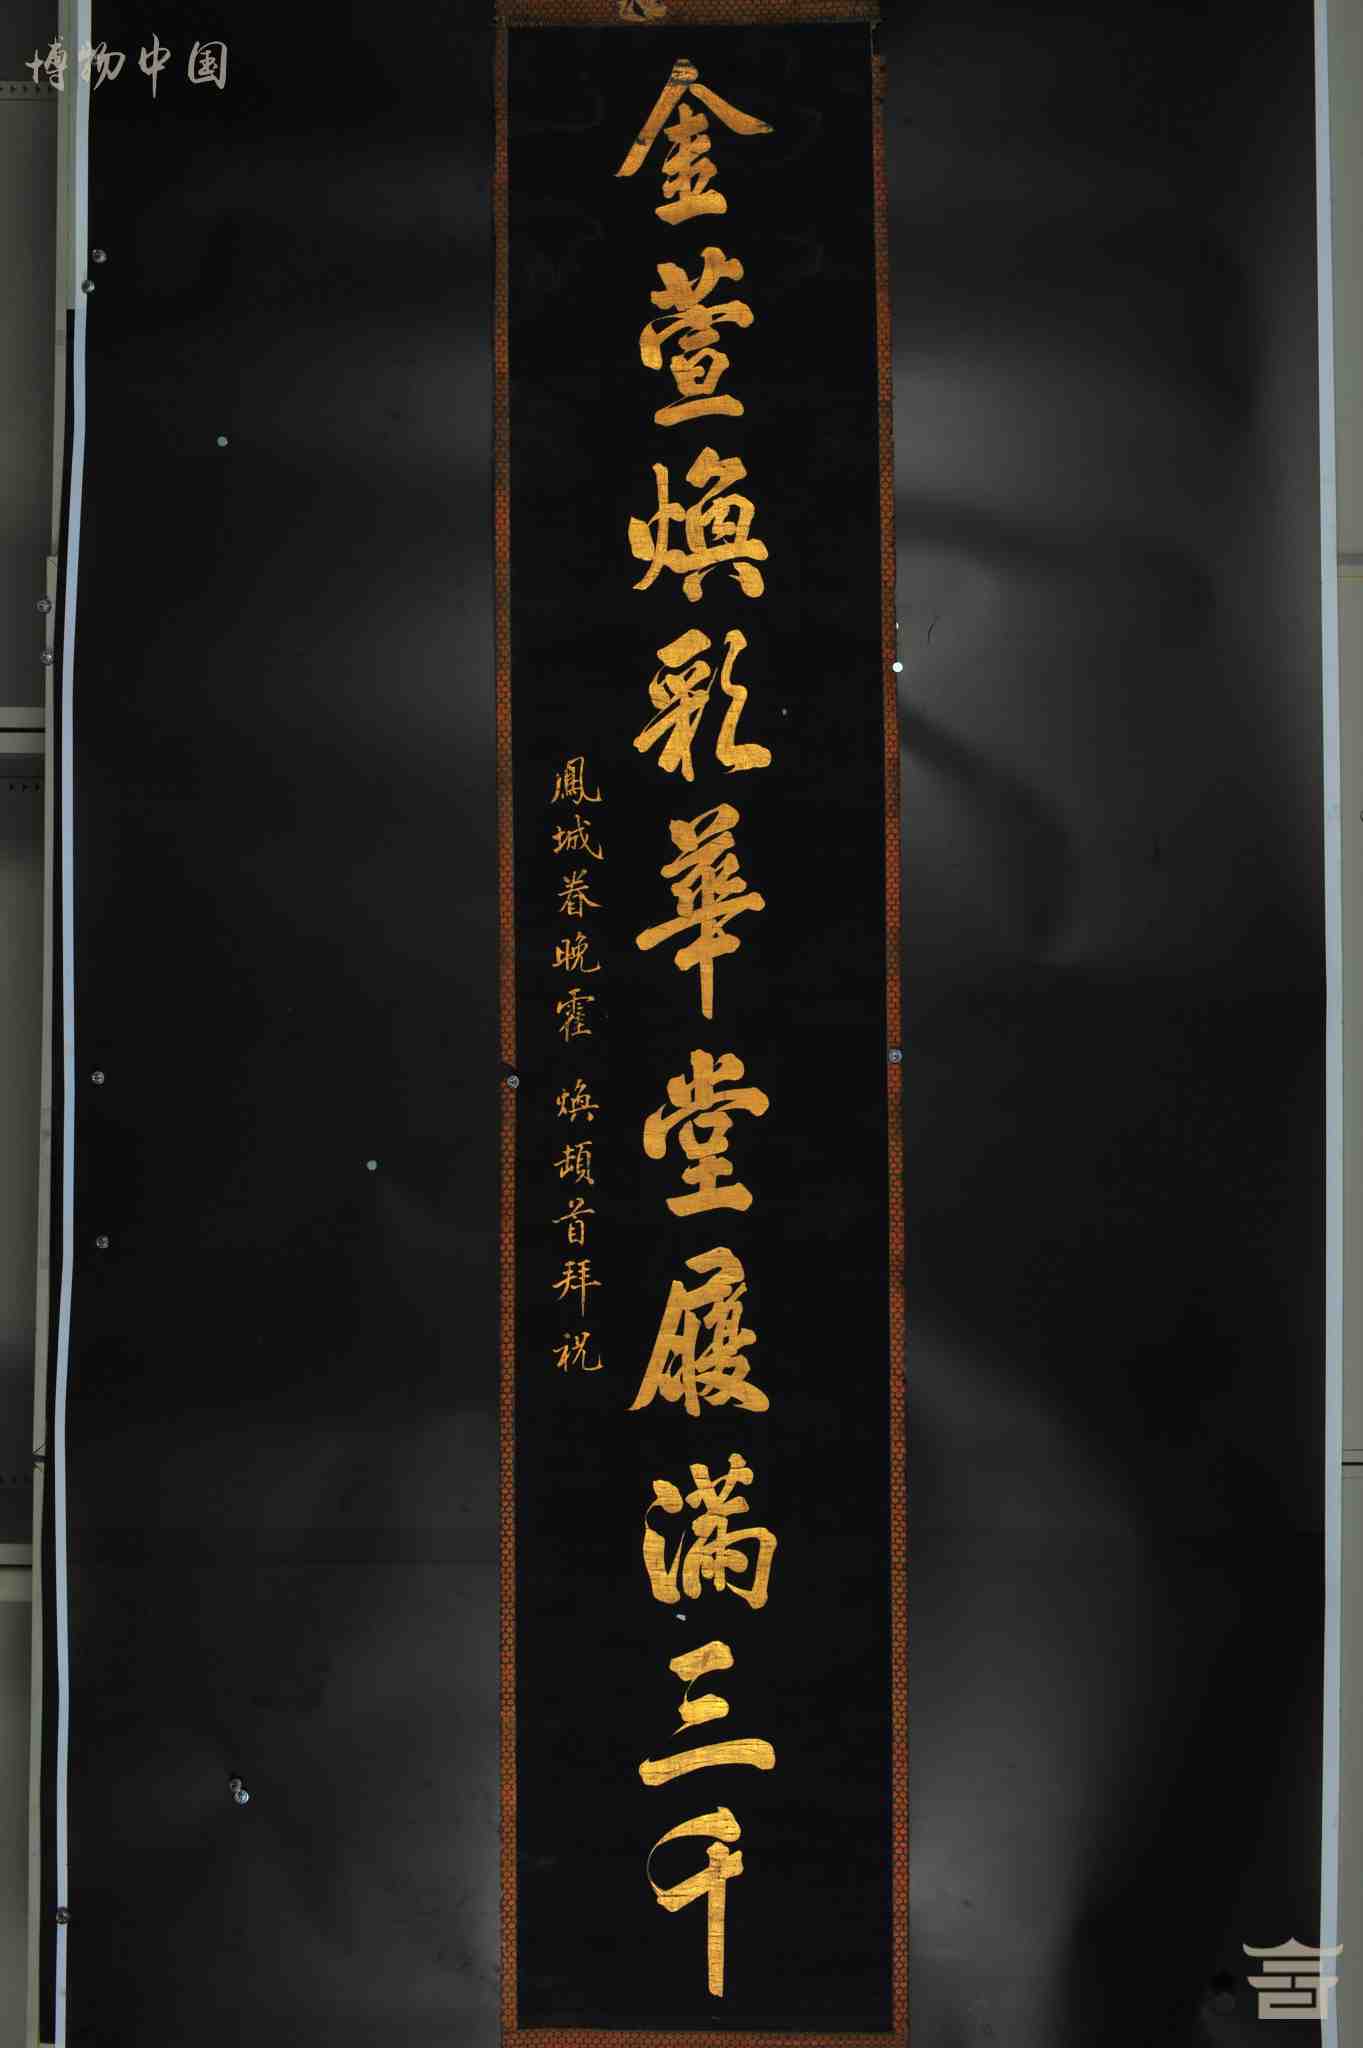 博物中国
金萱煥彩華堂履滿三千
鳳城眷晚霍煥頓首拜祝